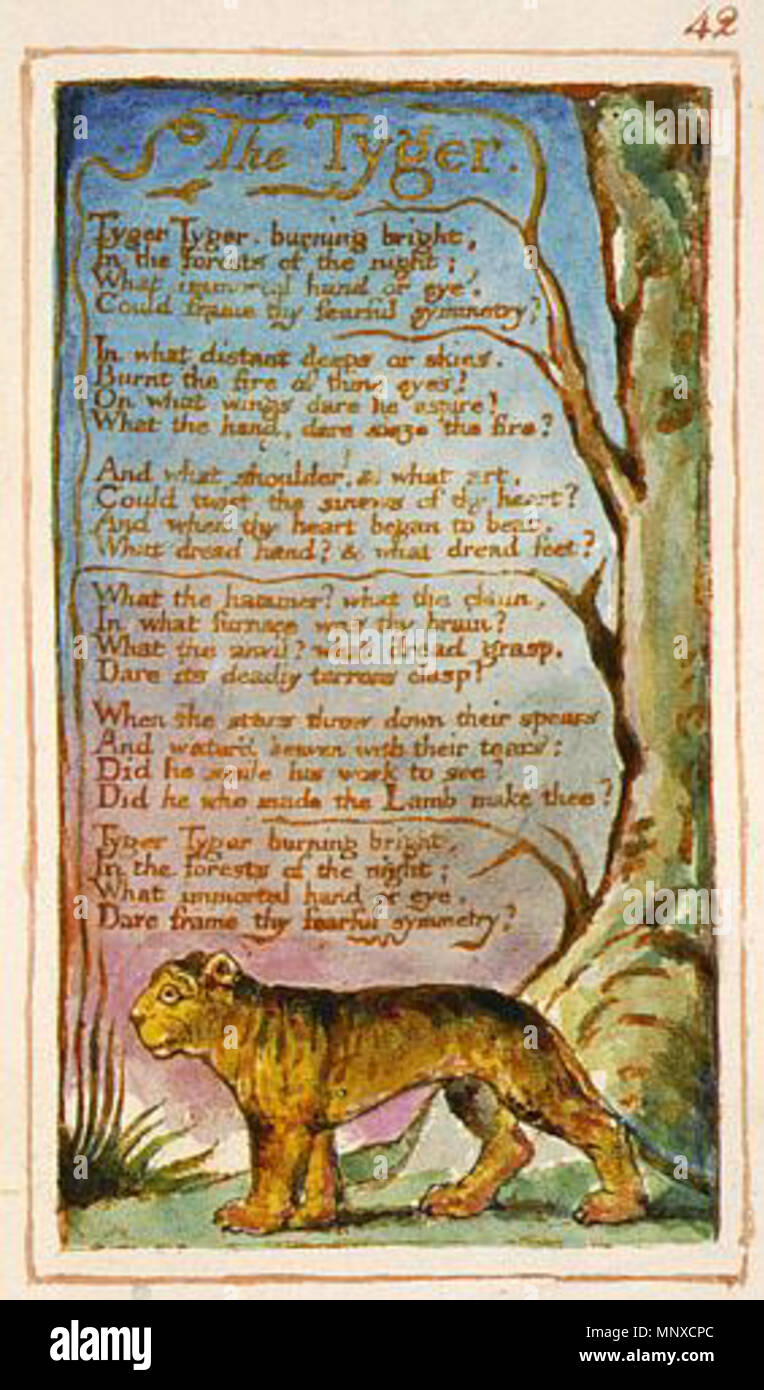 42
The Tyger.
Tyger Tyger. burning bright,
In the forests of the night;
What immortal hand or eye,
Could frame thy fearful symmetry?
In what distant deeps or skies.
Burnt the fire of thine eyes?
On what wings dare he aspire?
What the hand, dare sieze the fire?
And what shoulder, & what art,
Could twist the sinews of thy heart?
And when thy heart began to beat,
What dread hand? & what dread feet?
What the hammer? what the chain,
In what furnace was thy brain?
What the anvil? what dread grasp,
Dare its deadly terrors clasp?
When the stars threw down their spears
And water'd heaven with their tears:
Did he smile his work to see?
Did he who made the Lamb make thee?
Tyger Tyger burning bright,
In the forests of the night;
What immortal hand or eye,
Dare frame thy fearful symmetry?
alamy
alamy
Image ID: MNXCPC
www.alamy.com